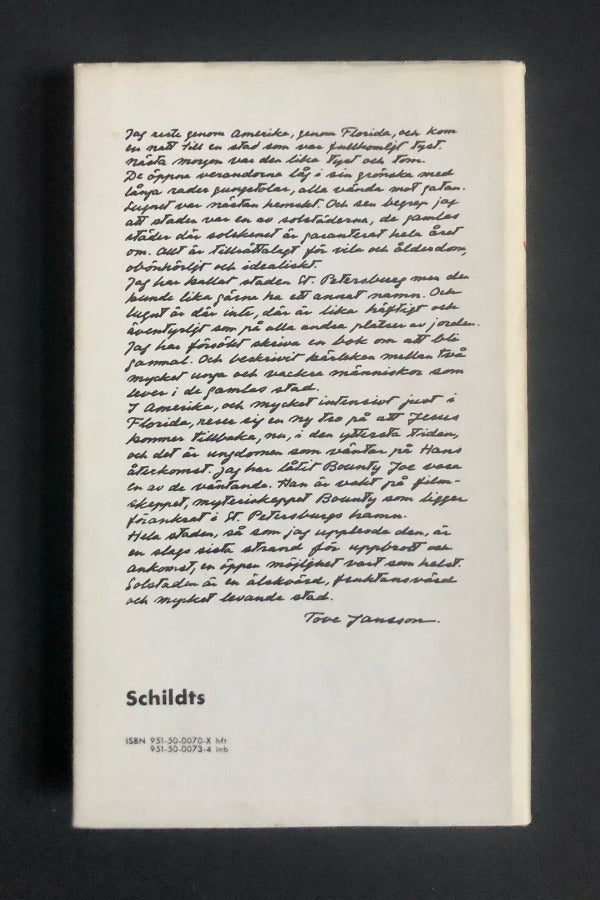 Jag reste genom Amerika, genom Florida, och kom
en natt till en stad som var fullkomligt tyst.
Nästa morgon var den lika tyst och tom.
De öppna verandorna låg i sin grönska med
långa rader gungstolar, alla vända mot gatan.
Lugnet var nästan hemskt. Och sen begrep jag
att staden var en av solstäderna, de gamlas
städer där solskenet är garanterat hela året
om. Allt är tillrättalagt för vila och ålderdom,
obönhörligt och idealiskt.
Jag har kallat staden St. Petersburg men den
kunde lika gärna ha ett annat namn. Och
lugnet är där inte, där är lika häftigt och
äventyrligt som på alla andra platser av jorden.
Jag har försökt skriva en bok om att bli
gammal. Och beskrivit kärleken mellan två
mycket unga och vackra människor som
lever i de gamlas stad.
I Amerika, och mycket intensivt just i
Florida, reser sig en ny tro på att Jesus
kommer tillbaka, nu, i den yttersta tiden,
och det är ungdomen som väntar på Hans
återkomst. Jag har låtit Bounty Joe vara
en av de väntande. Han är vakt på film-
skeppet, mysterieskeppet Bounty som ligger
förankrat i St. Petersburgs hamn.
Hela staden, så som jag upplevde den, är
en slags sista strand för uppbrott och
ankomst, en öppen möjlighet vart som helst.
Solstaden är en älskvärd, fruktansvärd
och mycket levande stad.
Tove Jansson.
Schildts
ISBN 951-50-0070-X hft
951-50-0073-4 inb